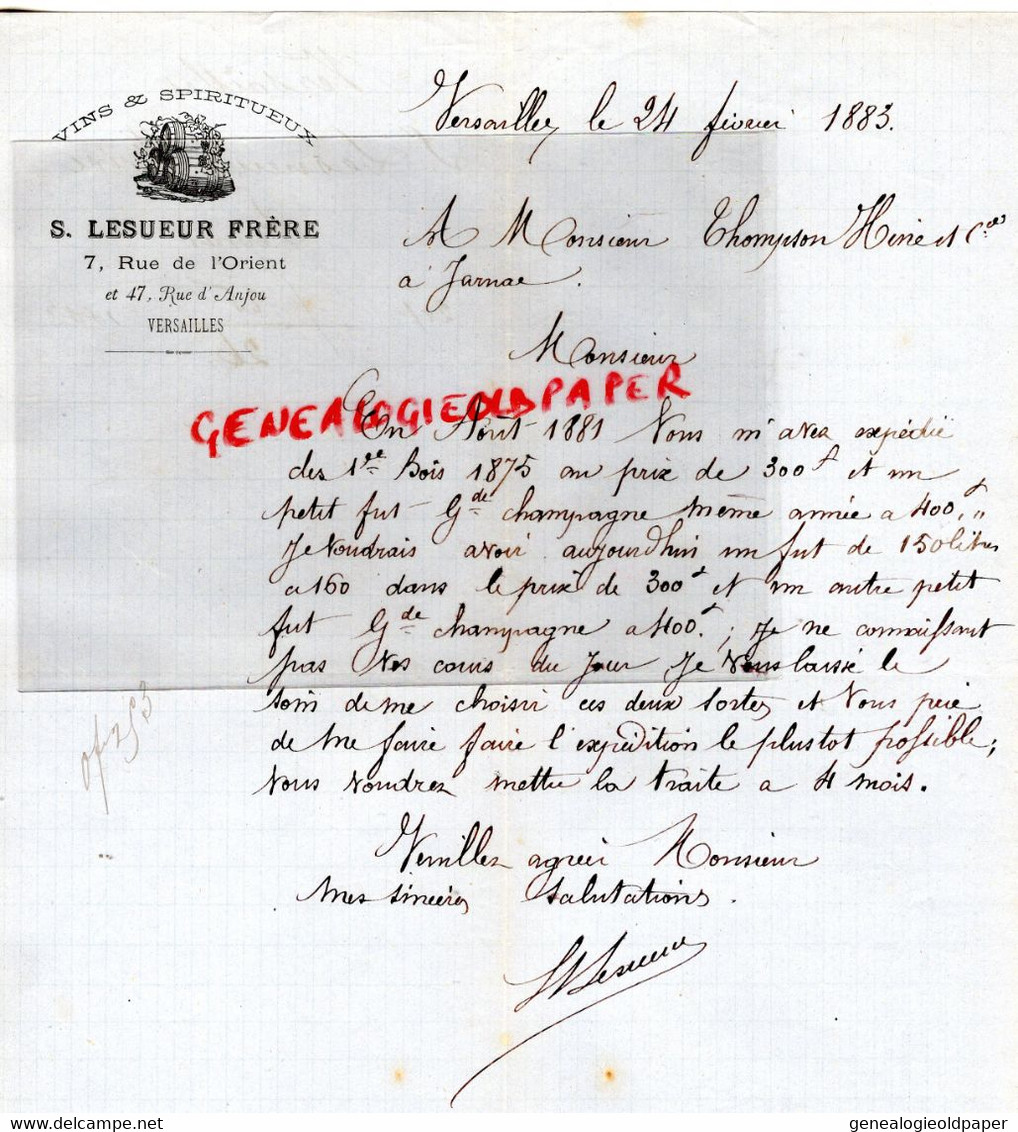 VINS & SPIRITUEUX
S. LESUEUR FRÈRE
7, Rue de l'Orient
et 47, Rue d'Anjou
VERSAILLES
Versailles le 24 février 1883.
A Monsieur Thompson Hine et Cie
à Jarnac.
Monsieur
GENEALOGIEOLDPAPER
En Août 1881 Vous m'avez expédié
des 1re Bois 1875 au prix de 300f et un
petit fut Gde champagne même année a 400f „
Je Voudrais avoir aujourdhui un fut de 150 litres
a 160 dans le prix de 300f et un autre petit
fut Gde champagne a 400f. ; Je ne connaissant
pas Vos cours du Jour Je Vous laisse le
soin de me choisir ces deux sortes et Vous prie
de me faire faire l'expédition le plustot possible;
Vous Voudrez mettre la traite a 4 mois.
Veuillez agréer Monsieur
mes sincères salutations.
Lesueur
delcampe.net
genealogieoldpaper